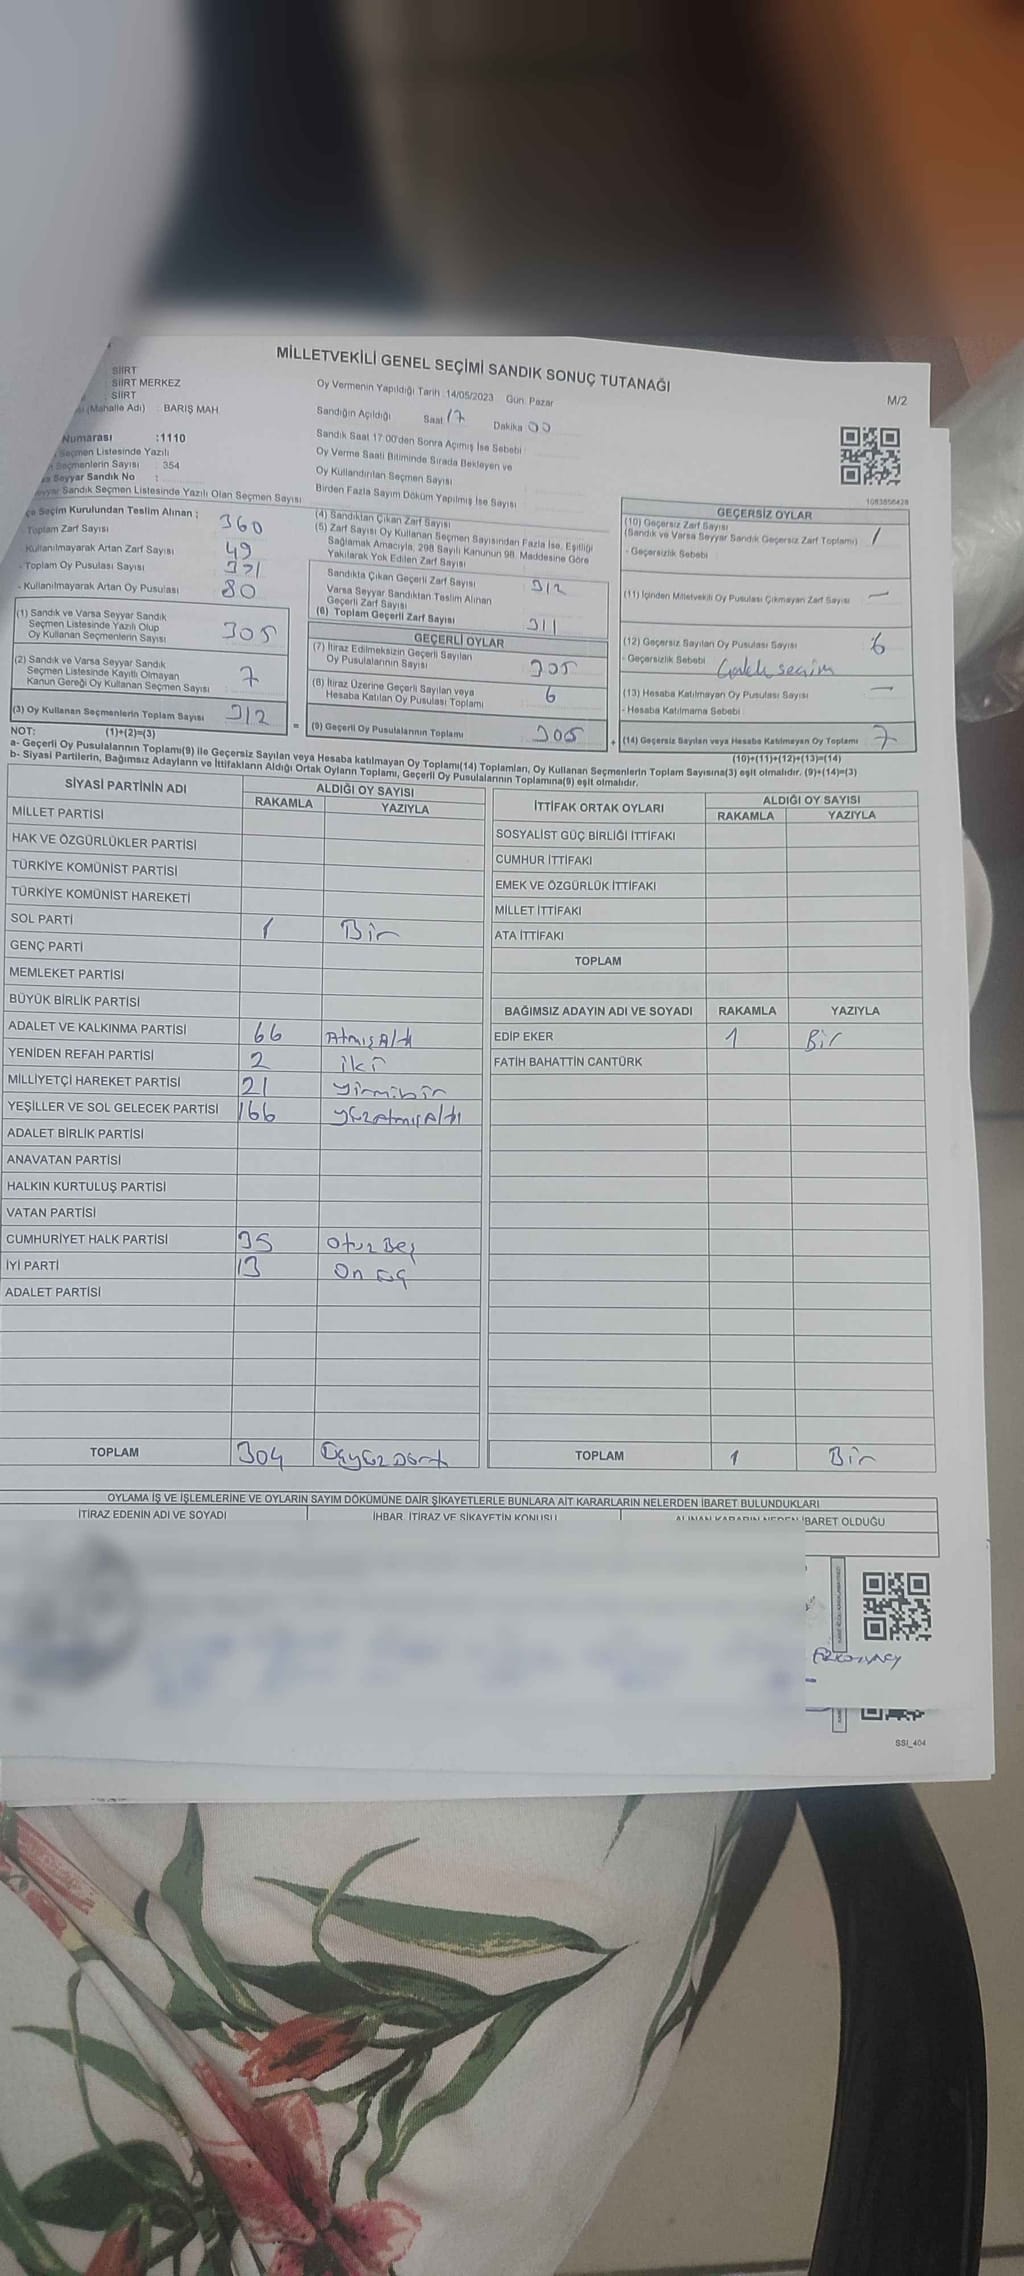 MİLLETVEKİLİ GENEL SEÇİMİ SANDIK SONUÇ TUTANAĞI
M/2
SİİRT
SİİRT MERKEZ
SİİRT
(Mahalle Adı) : BARIŞ MAH
Oy Vermenin Yapıldığı Tarih : 14/05/2023 Gün: Pazar
Sandığın Açıldığı Saat 17 Dakika 00
Numarası :1110
Seçmen Listesinde Yazılı
Seçmenlerin Sayısı : 354
Seyyar Sandık No :
Seyyar Sandık Seçmen Listesinde Yazılı Olan Seçmen Sayısı
Sandık Saat 17:00'den Sonra Açımış İse Sebebi :
Oy Verme Saati Bitiminde Sırada Bekleyen ve
Oy Kullandırılan Seçmen Sayısı
Birden Fazla Sayım Döküm Yapılmış İse Sayısı
1083856428
Seçim Kurulundan Teslim Alınan ;
Toplam Zarf Sayısı 360
Kullanılmayarak Artan Zarf Sayısı 49
- Toplam Oy Pusulası Sayısı
- Kullanılmayarak Artan Oy Pusulası 80
(1) Sandık ve Varsa Seyyar Sandık
Seçmen Listesinde Yazılı Olup
Oy Kullanan Seçmenlerin Sayısı 305
(2) Sandık ve Varsa Seyyar Sandık
Seçmen Listesinde Kayıtlı Olmayan
Kanun Gereği Oy Kullanan Seçmen Sayısı 7
(3) Oy Kullanan Seçmenlerin Toplam Sayısı 312
(4) Sandıktan Çıkan Zarf Sayısı
(5) Zarf Sayısı Oy Kullanan Seçmen Sayısından Fazla İse, Eşitliği
Sağlamak Amacıyla, 298 Sayılı Kanunun 98. Maddesine Göre
Yakılarak Yok Edilen Zarf Sayısı
Sandıkta Çıkan Geçerli Zarf Sayısı 312
Varsa Seyyar Sandıktan Teslim Alınan
Geçerli Zarf Sayısı
(6) Toplam Geçerli Zarf Sayısı 311
GEÇERLİ OYLAR
(7) İtiraz Edilmeksizin Geçerli Sayılan
Oy Pusulalarının Sayısı 305
(8) İtiraz Üzerine Geçerli Sayılan veya
Hesaba Katılan Oy Pusulası Toplamı 6
= (9) Geçerli Oy Pusulalarının Toplamı 305
GEÇERSİZ OYLAR
(10) Geçersiz Zarf Sayısı
(Sandık ve Varsa Seyyar Sandık Geçersiz Zarf Toplamı) 1
- Geçersizlik Sebebi
(11) İçinden Milletvekili Oy Pusulası Çıkmayan Zarf Sayısı —
(12) Geçersiz Sayılan Oy Pusulası Sayısı 6
- Geçersizlik Sebebi seçim
(13) Hesaba Katılmayan Oy Pusulası Sayısı —
- Hesaba Katılmama Sebebi
+ (14) Geçersiz Sayılan veya Hesaba Katılmayan Oy Toplamı 7
NOT: (1)+(2)=(3) (10)+(11)+(12)+(13)=(14)
a- Geçerli Oy Pusulalarının Toplamı(9) ile Geçersiz Sayılan veya Hesaba katılmayan Oy Toplamı(14) Toplamları, Oy Kullanan Seçmenlerin Toplam Sayısına(3) eşit olmalıdır. (9)+(14)=(3)
b- Siyasi Partilerin, Bağımsız Adayların ve İttifakların Aldığı Ortak Oyların Toplamı, Geçerli Oy Pusulalarının Toplamına(9) eşit olmalıdır.
SİYASİ PARTİNİN ADI ALDIĞI OY SAYISI
RAKAMLA YAZIYLA
MİLLET PARTİSİ
HAK VE ÖZGÜRLÜKLER PARTİSİ
TÜRKİYE KOMÜNİST PARTİSİ
TÜRKİYE KOMÜNİST HAREKETİ
SOL PARTİ 1 Bir
GENÇ PARTİ
MEMLEKET PARTİSİ
BÜYÜK BİRLİK PARTİSİ
ADALET VE KALKINMA PARTİSİ 66 Atmış Altı
YENİDEN REFAH PARTİSİ 2 iki
MİLLİYETÇİ HAREKET PARTİSİ 21 yirmibir
YEŞİLLER VE SOL GELECEK PARTİSİ 166 yüzatmışAltı
ADALET BİRLİK PARTİSİ
ANAVATAN PARTİSİ
HALKIN KURTULUŞ PARTİSİ
VATAN PARTİSİ
CUMHURİYET HALK PARTİSİ 35 otuz Beş
İYİ PARTİ 13 On üç
ADALET PARTİSİ
TOPLAM 304 Üçyüz Dört
İTTİFAK ORTAK OYLARI ALDIĞI OY SAYISI
RAKAMLA YAZIYLA
SOSYALİST GÜÇ BİRLİĞİ İTTİFAKI
CUMHUR İTTİFAKI
EMEK VE ÖZGÜRLÜK İTTİFAKI
MİLLET İTTİFAKI
ATA İTTİFAKI
TOPLAM
BAĞIMSIZ ADAYIN ADI VE SOYADI RAKAMLA YAZIYLA
EDİP EKER 1 Bir
FATİH BAHATTİN CANTÜRK
TOPLAM 1 Bir
OYLAMA İŞ VE İŞLEMLERİNE VE OYLARIN SAYIM DÖKÜMÜNE DAİR ŞİKAYETLERLE BUNLARA AİT KARARLARIN NELERDEN İBARET BULUNDUKLARI
İTİRAZ EDENİN ADI VE SOYADI
İHBAR, İTİRAZ VE ŞİKAYETİN KONUSU
ALINAN KARARIN NEDEN İBARET OLDUĞU
SSI_404